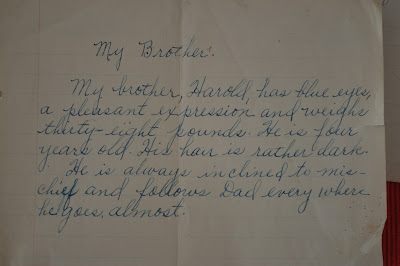 My Brother.
My brother, Harold, has blue eyes,
a pleasant expression and weighs
thirty-eight pounds. He is four
years old. His hair is rather dark.
He is always inclined to mis-
chief and follows Dad every where
he goes, almost.